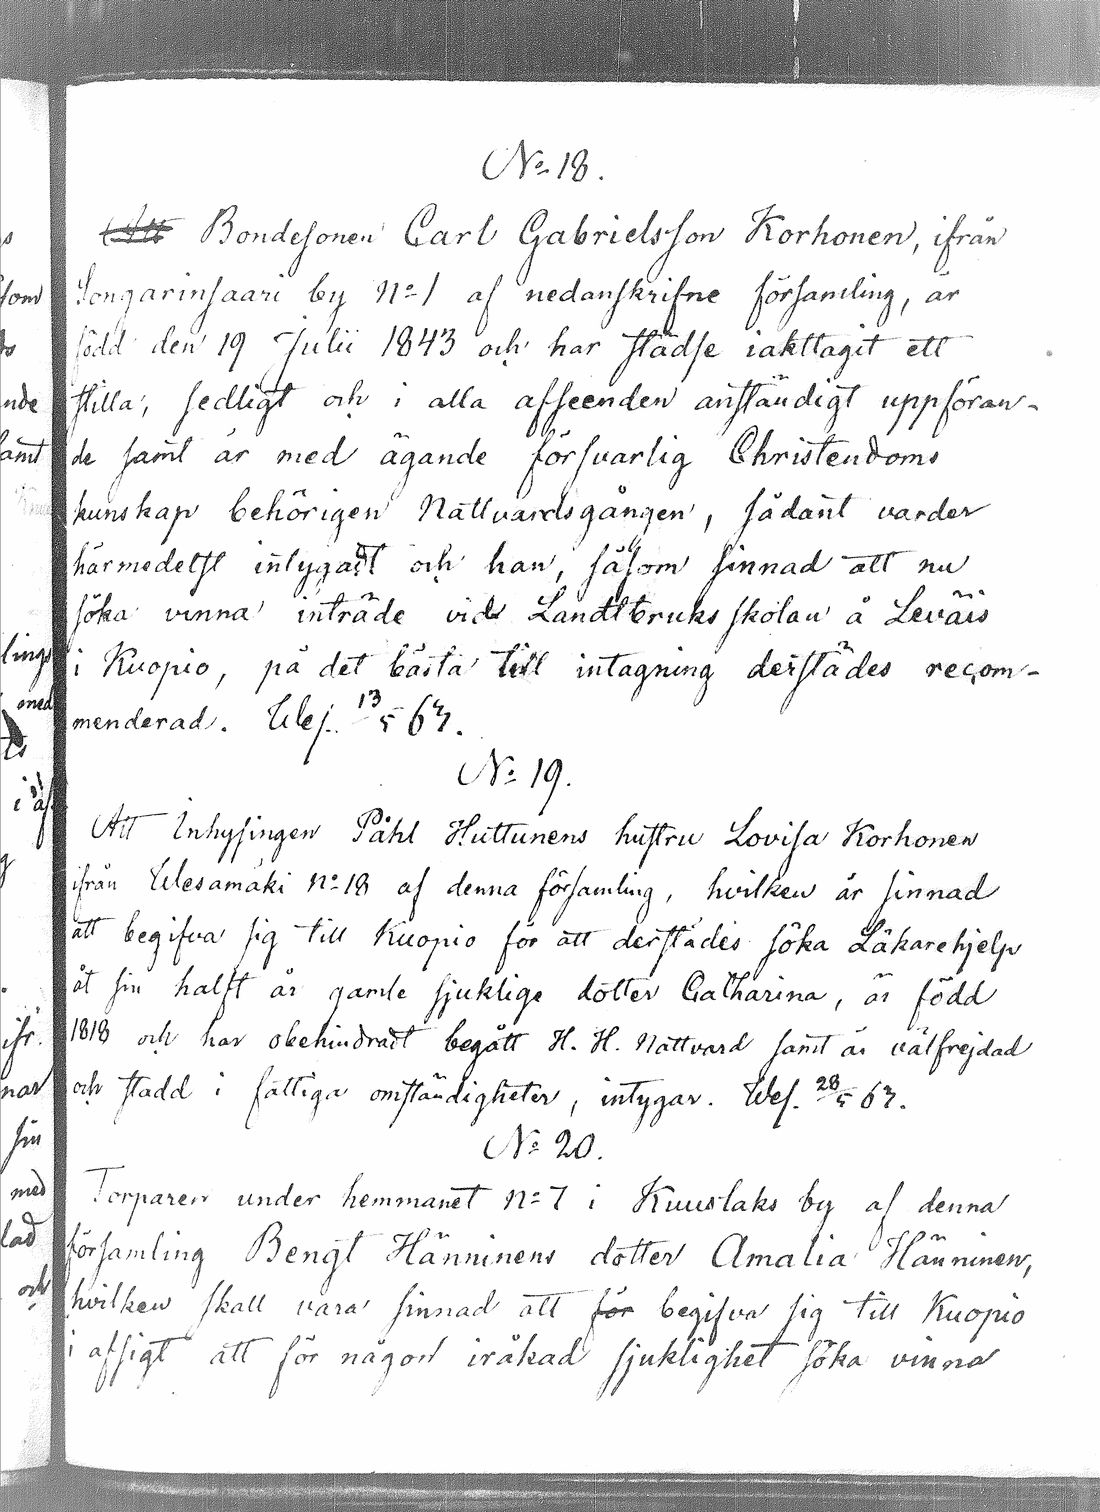 No 18.
Att Bondesonen Carl Gabrielsson Korhonen, ifrån
Songarinsaari by No 1 af nedanskrifne församling, är
född den 19 Julii 1843 och har städse iakttagit ett
stilla, sedligt och i alla afseenden anständigt uppföran-
de samt är med ägande försvarlig Christendoms
kunskap behörigen Nattvardsgången, sådant varder
härmedelst intygadt och han, såsom sinnad att nu
söka vinna inträde vid Landtbruksskolan å Leväis
i Kuopio, på det bästa till intagning derstädes recom-
menderad. Wes. 13/5 63.
No 19.
Att Inhysingen Påhl Huttunens hustru Lovisa Korhonen
ifrån Wesamäki No 18 af denna församling, hvilken är sinnad
att begifva sig till Kuopio för att derstädes söka Läkarehjelp
åt sin halft år gamle sjuklige dotter Catharina, är född
1818 och har obehindradt begått H. H. Nattvard samt är välfrejdad
och stadd i fattiga omständigheter, intygar. Wes. 28/5 63.
No 20.
Torparen under hemmanet No 7 i Kuuslaks by af denna
församling Bengt Hänninens dotter Amalia Hänninen,
hvilken skall vara sinnad att för begifva sig till Kuopio
i afsigt att för någon iråkad sjuklighet söka vinna